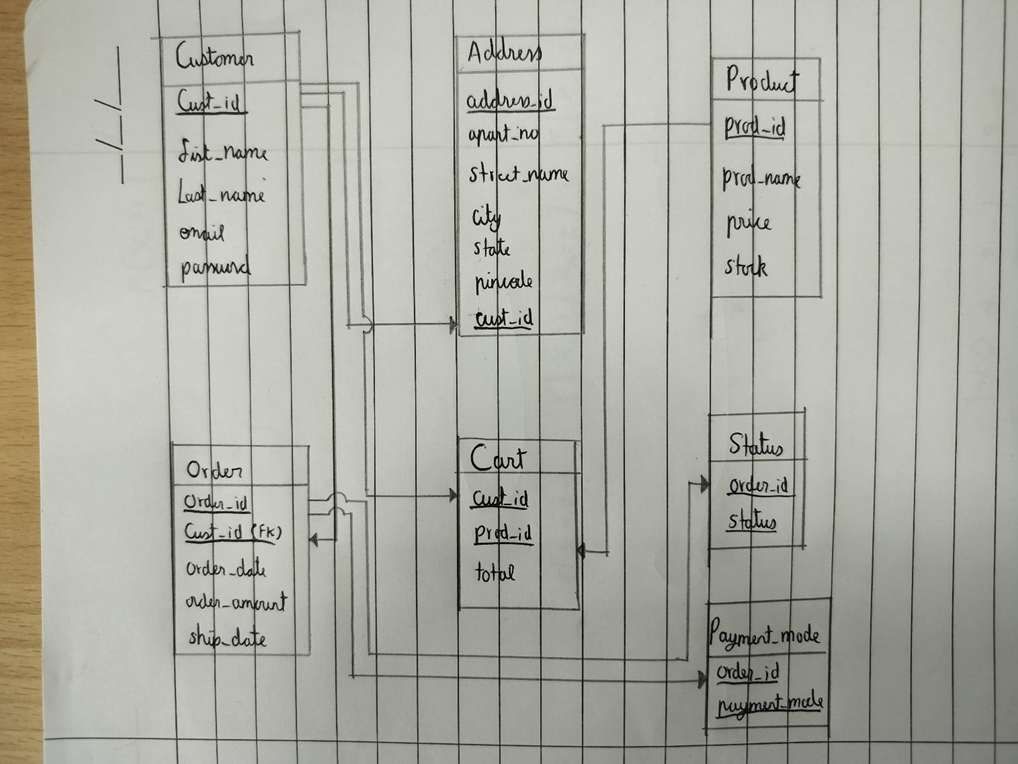 Customer
Cust_id
fist_name
Last_name
email
Address
address_id
apart_no
street_name
city
state
pincode
cust_id
Product
prod_id
prod_name
price
stock
Order
Order_id
Cust_id (FK)
order_date
order_amount
ship_date
Cart
cust_id
prod_id
total
Status
order_id
status
Payment_mode
order_id
payment_mode